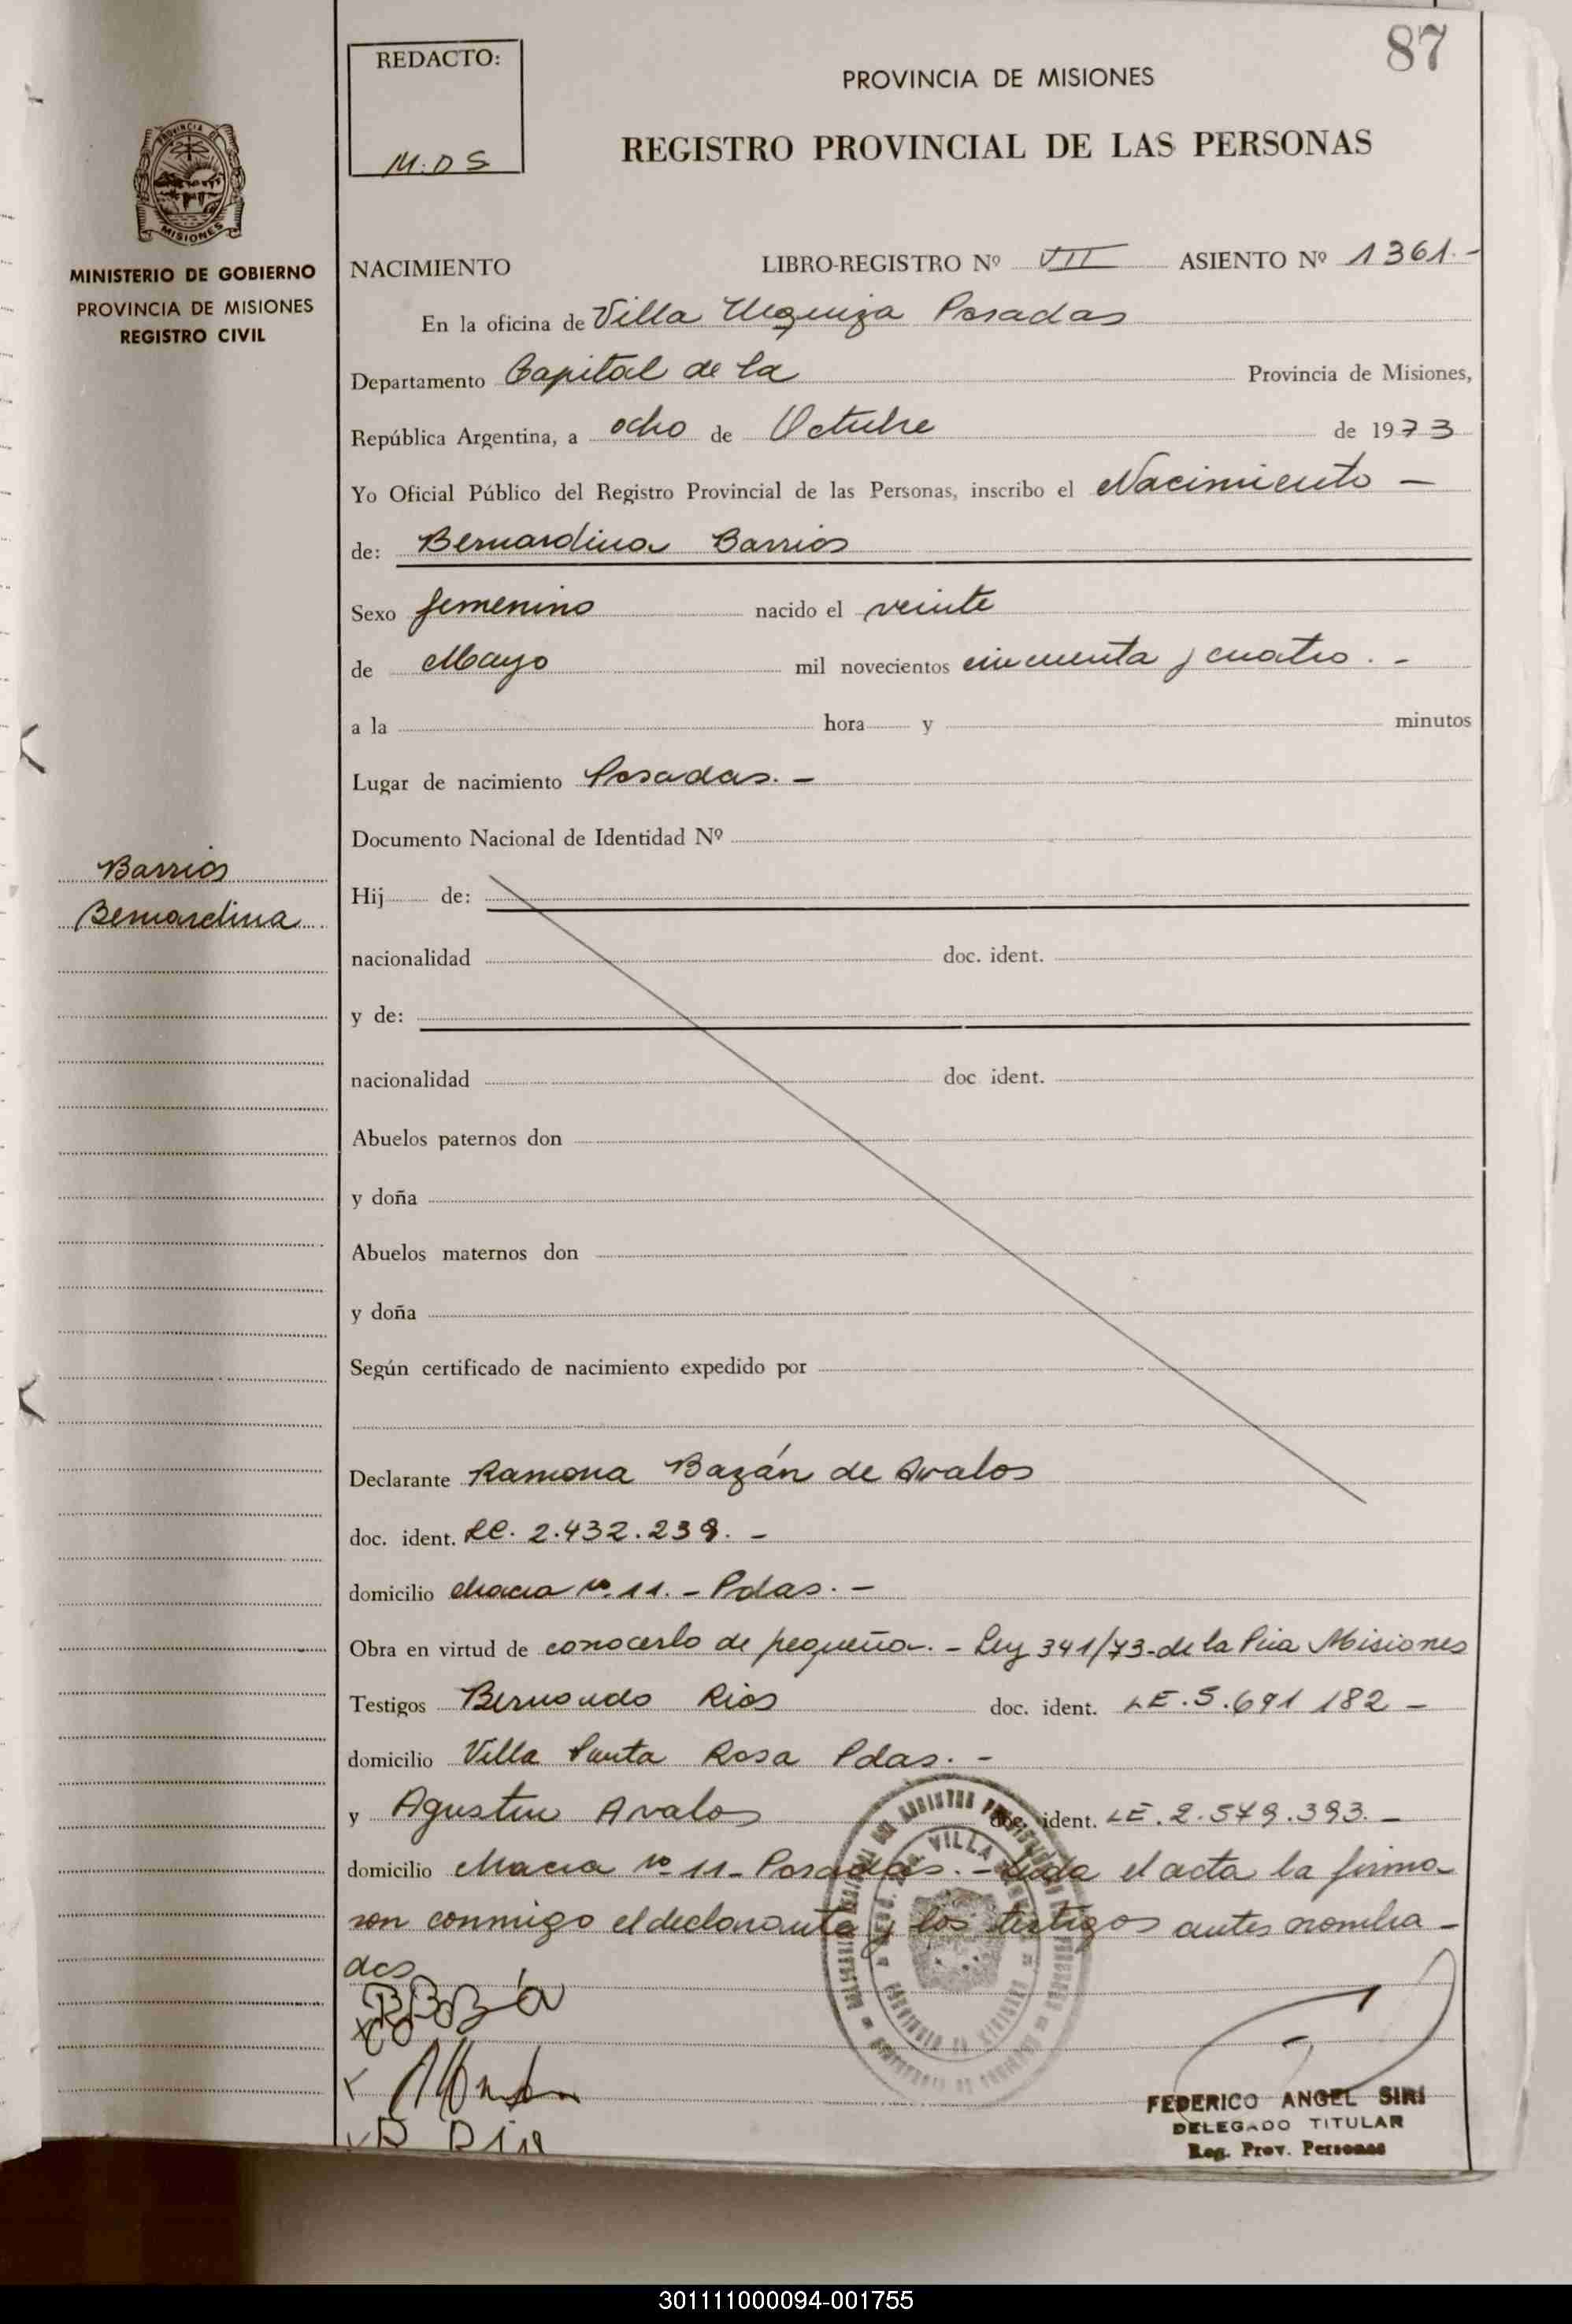 87
REDACTO:
M.D S
PROVINCIA DE MISIONES
REGISTRO PROVINCIAL DE LAS PERSONAS
PROVINCIA DE
MISIONES
MINISTERIO DE GOBIERNO
PROVINCIA DE MISIONES
REGISTRO CIVIL
NACIMIENTO LIBRO-REGISTRO Nº VII ASIENTO Nº 1361.-
En la oficina de Villa Urquiza Posadas
Departamento Capital de la Provincia de Misiones,
República Argentina, a ocho de Octubre de 1973
Yo Oficial Público del Registro Provincial de las Personas, inscribo el Nacimiento -
de: Bernardina Barrios
Sexo femenino nacido el veinte
de Mayo mil novecientos cincuenta y cuatro. -
a la hora y minutos
Lugar de nacimiento Posadas. -
Documento Nacional de Identidad Nº
Barrios
Bernardina
Hij de:
nacionalidad doc. ident.
y de:
nacionalidad doc ident.
Abuelos paternos don
y doña
Abuelos maternos don
y doña
Según certificado de nacimiento expedido por
Declarante Ramona Bazán de Avalos
doc. ident. LC. 2.432.239. -
domicilio Chacra nº 11. - Pdas. -
Obra en virtud de conocerlo de pequeña. - Ley 341/73-de la Pcia Misiones
Testigos Bernardo Rios doc. ident. LE.5.691 182 -
domicilio Villa Santa Rosa Pdas. -
y Agustin Avalos doc. ident. LE.2.579.393. -
domicilio Chacra nº 11- Posadas. - Leida el acta la firma-
ron conmigo el declarante y los testigos antes nombra-
dos
FEDERICO ANGEL SIRI
DELEGADO TITULAR
Reg. Prov. Personas
301111000094-001755